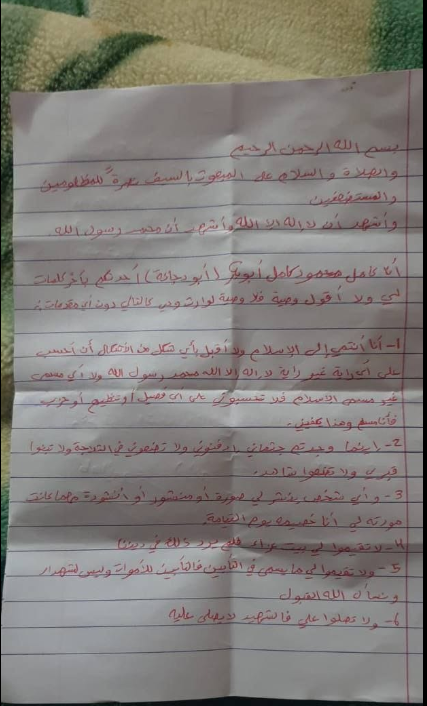 بسم الله الرحمن الرحيم
والصلاة والسلام على المبعوث بالسيف نصرةً للمظلومين
والمستضعفين
وأشهد أن لا إله إلا الله وأشهد أن محمد رسول الله
أنا كامل محمود كامل (أبو دجانة) أحدثكم بآخر كلمات
لي ولا أقول وصية فلا وصية لوارث وهي كالتالي دون أي مقدمات:
1- أنا أنتمي إلى الإسلام ولا أقبل بأي شكل من الأشكال أن أحسب
على أي راية غير راية لا إله إلا الله محمد رسول الله ولا أي مسمى
غير مسمى الإسلام فلا تحسبوني على أي فصيل أو تنظيم أو حزب
فأنا مسلم وهذا يكفيني.
2- أينما وجدتم جثماني ادفنوني ولا تضعوني في الثلاجة ولا تبنوا
قبري ولا تضعوا شاهد.
3- وأي شخص ينشر لي صورة أو منشور أو أنشودة مهما كانت
مودته لي أنا خصيمه يوم القيامة.
4- لا تقيموا لي بيت عزاء فلم يرد ذلك في ديننا
5- ولا تقيموا لي ما يسمى في التأبين فالتأبين للأموات وليس للشهداء
ونسأل الله القبول
6- ولا تصلوا علي فالشهيد لا يصلى عليه